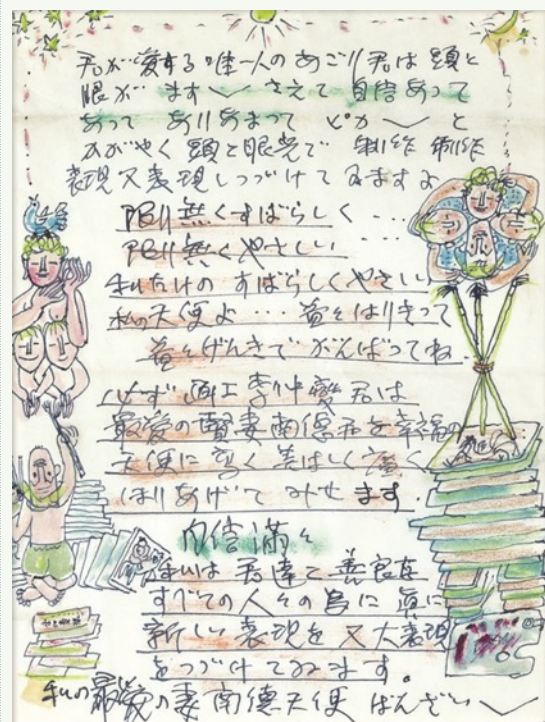 君が愛する唯一人のあごり君は頭と
眼がます〱さえて自信あって
あって ありあまって ピカ〱と
かがやく頭と眼光で 制作 制作
表現又表現しつづけてゐますよ
限り無くすばらしく・・・
限り無くやさしい・・・
私だけの すばらしくやさしい
私の天使よ・・・益々はりきって
益々げんきで がんばってね.
必ず 画工李仲燮君は
最愛の賢妻南徳君を幸福の
天使に高く美はしく
はりあげて みせ ます.
自信満々
私は 君達と善良な
すべての人々の為に真に
新しい表現を又大表現
をつづけてゐます。
私の最愛の妻南徳天使 ばんざい〱